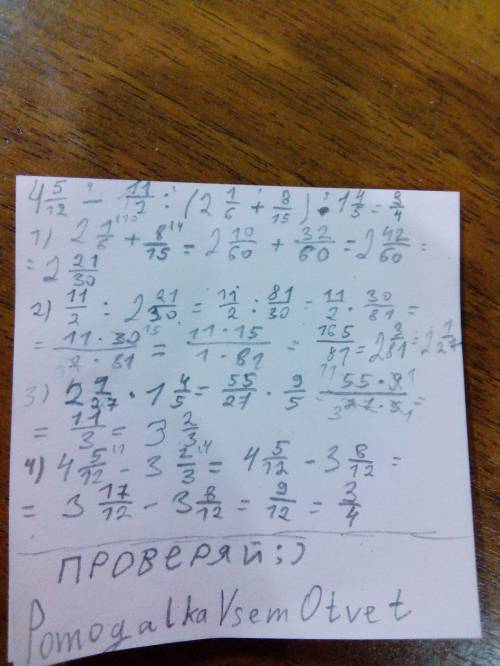 4 5/12 - 11/2 : (2 1/6 + 8/15) · 1 4/5 = 3/4
1) 2 1/6 + 8/15 = 2 10/60 + 32/60 = 2 42/60 =
= 2 21/30
2) 11/2 : 2 21/30 = 11/2 : 81/30 = 11/2 · 30/81 =
= 11·30/2·81 = 11·15/1·81 = 165/81 = 2 3/81 = 2 1/27
3) 2 1/27 · 1 4/5 = 55/27 · 9/5 = 55·9/27·5 =
= 11/3 = 3 2/3
4) 4 5/12 - 3 2/3 = 4 5/12 - 3 8/12 =
= 3 17/12 - 3 8/12 = 9/12 = 3/4
ПРОВЕРЯЙ:)
PomogalkaVsemOtvet